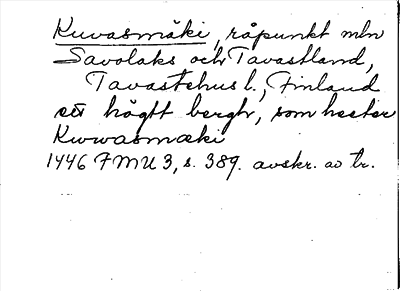 Kuvasmäki, råpunkt mln
Savolaks och Tavastland,
Tavastehus l., Finland
ett högtt bergh, som hester
Kwwasmæki
1446 FMU 3, s. 389. avskr. av tr.